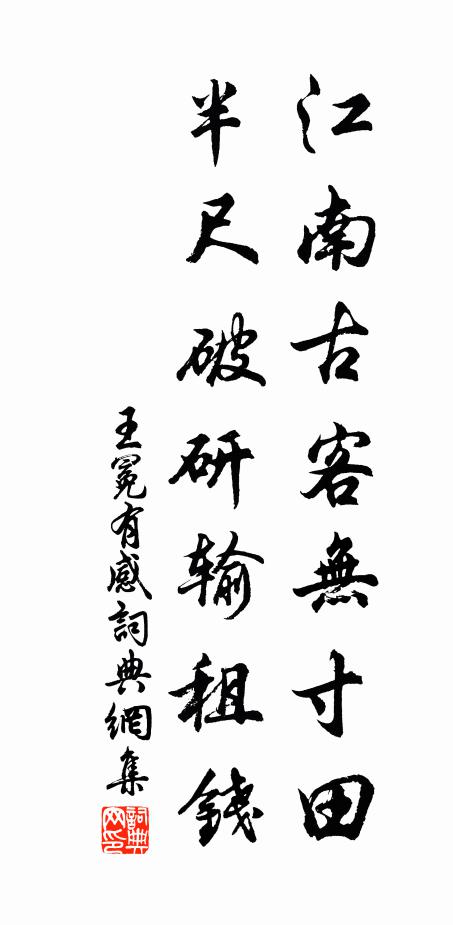 江南古客無寸田
半尺破研输租錢
王冕有感詞典網集
詞典网印